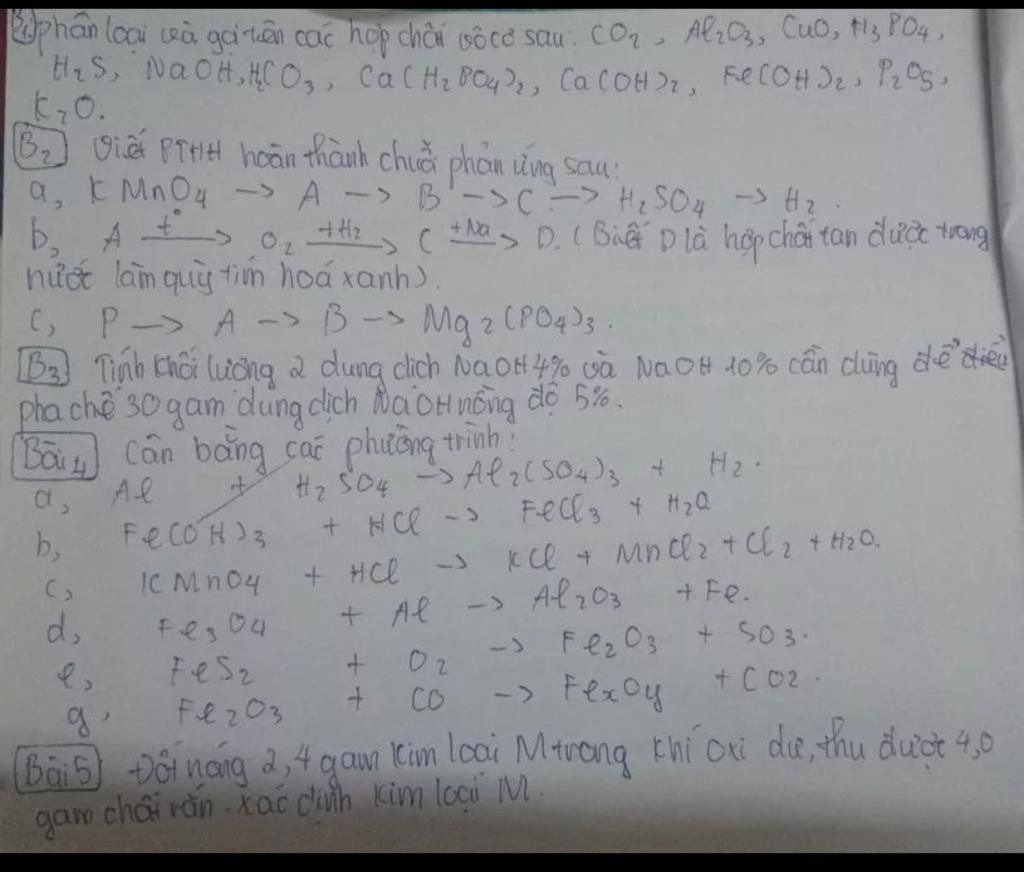 B1) phân loại và gọi tên các hợp chất vô cơ sau: CO2, Al2O3, CuO, H3PO4,
H2S, NaOH, H2CO3, Ca(H2PO4)2, Ca(OH)2, Fe(OH)2, P2O5,
K2O.
B2 Viết PTHH hoàn thành chuỗi phản ứng sau:
a, KMnO4 -> A -> B -> C -> H2SO4 -> H2.
b, A t° -> O2 +H2 -> C +Na -> D. (Biết D là hợp chất tan được trong
nước làm quỳ tím hoá xanh).
c, P -> A -> B -> Mg2(PO4)3.
B3 Tính khối lượng 2 dung dịch NaOH 4% và NaOH 10% cần dùng để điều
pha chế 30 gam dung dịch NaOH nồng độ 5%.
Bài 4 Cân bằng các phương trình:
a, Al + H2SO4 -> Al2(SO4)3 + H2.
b, Fe(OH)3 + HCl -> FeCl3 + H2O
c, KMnO4 + HCl -> KCl + MnCl2 + Cl2 + H2O.
d, Fe3O4 + Al -> Al2O3 + Fe.
e, FeS2 + O2 -> Fe2O3 + SO3.
g, Fe2O3 + CO -> FexOy + CO2.
Bài 5 Đốt nóng 2,4 gam kim loại M trong khí oxi dư, thu được 4,0
gam chất rắn. xác định kim loại M.